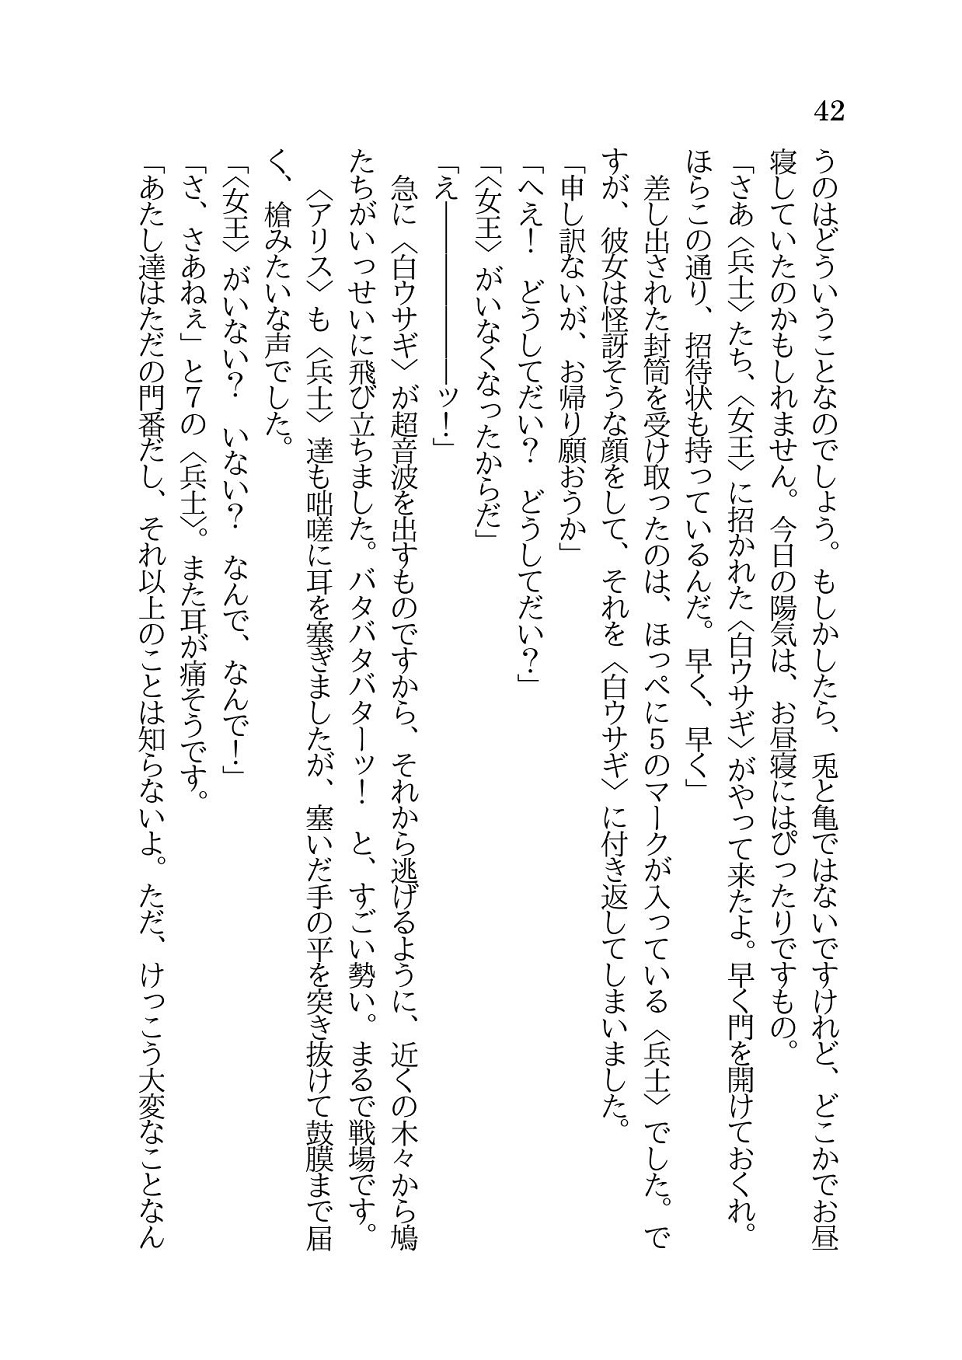 42
うのはどういうことなのでしょう。もしかしたら、兎と亀ではないですけれど、どこかでお昼
寝していたのかもしれません。今日の陽気は、お昼寝にはぴったりですもの。
「さあ〈兵士〉たち、〈女王〉に招かれた〈白ウサギ〉がやって来たよ。早く門を開けておくれ。
ほらこの通り、招待状も持っているんだ。早く、早く」
　差し出された封筒を受け取ったのは、ほっぺに５のマークが入っている〈兵士〉でした。で
すが、彼女は怪訝そうな顔をして、それを〈白ウサギ〉に付き返してしまいました。
「申し訳ないが、お帰り願おうか」
「へえ！　どうしてだい？　どうしてだい？」
「〈女王〉がいなくなったからだ」
「え――――――ッ！」
　急に〈白ウサギ〉が超音波を出すものですから、それから逃げるように、近くの木々から鳩
たちがいっせいに飛び立ちました。バタバタバターッ！　と、すごい勢い。まるで戦場です。
　〈アリス〉も〈兵士〉達も咄嗟に耳を塞ぎましたが、塞いだ手の平を突き抜けて鼓膜まで届
く、槍みたいな声でした。
「〈女王〉がいない？　いない？　なんで、なんで！」
「さ、さあねぇ」と７の〈兵士〉。また耳が痛そうです。
「あたし達はただの門番だし、それ以上のことは知らないよ。ただ、けっこう大変なことなん